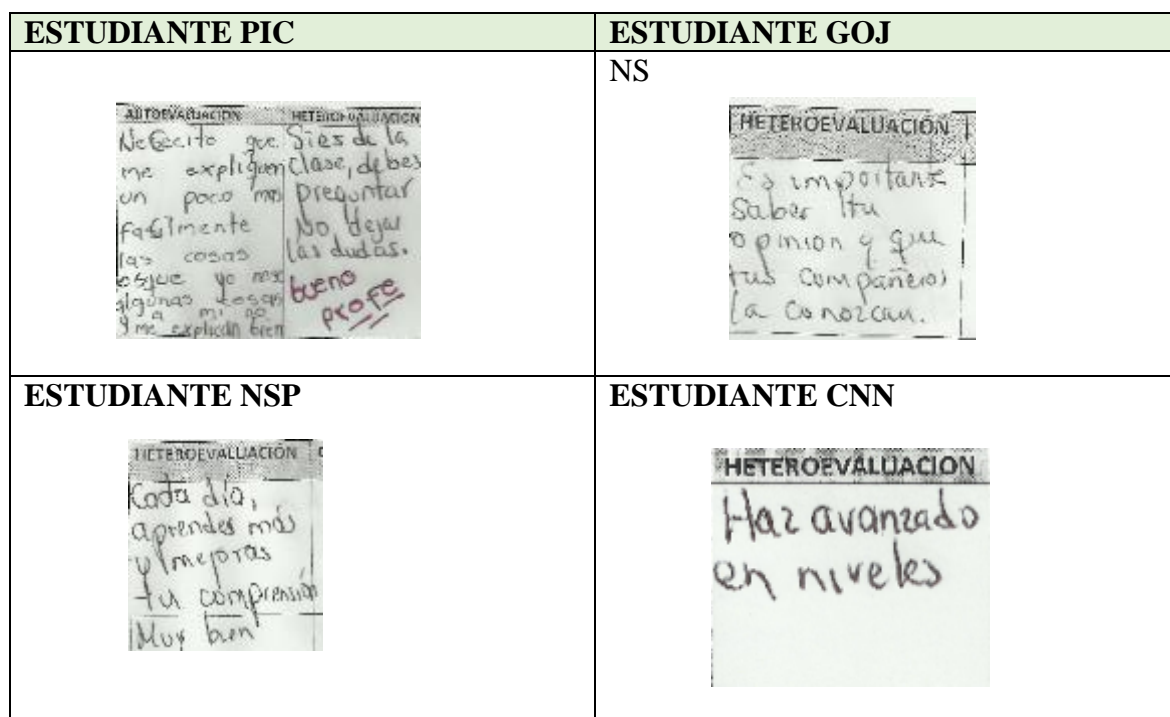 ESTUDIANTE PIC
AUTOEVALUACIÓN
Nececito que
me expliquen
un poco mas
facilmente
las cosas
algunas cosas
a mi no
y me explican bien
HETEROEVALUACION
Si es de la
clase, debes
preguntar
No dejar
las dudas.
bueno
profe
ESTUDIANTE GOJ
NS
HETEROEVALUACIÓN
Es importante
saber tu
opinion y que
tus compañeros
la conozcan.
ESTUDIANTE NSP
HETEROEVALUACIÓN
Cada día,
aprendes más
y mejoras
tu comprensión
Muy bien
ESTUDIANTE CNN
HETEROEVALUACION
Haz avanzado
en niveles